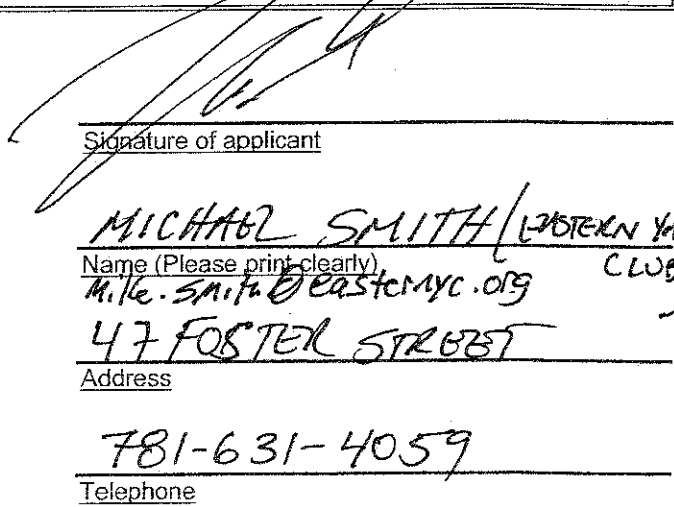 Signature of applicant
MICHAEL SMITH / EASTERN
Name (Please print clearly) CLUB
Mike.Smith@easternyc.org
47 FOSTER STREET
Address
781-631-4059
Telephone